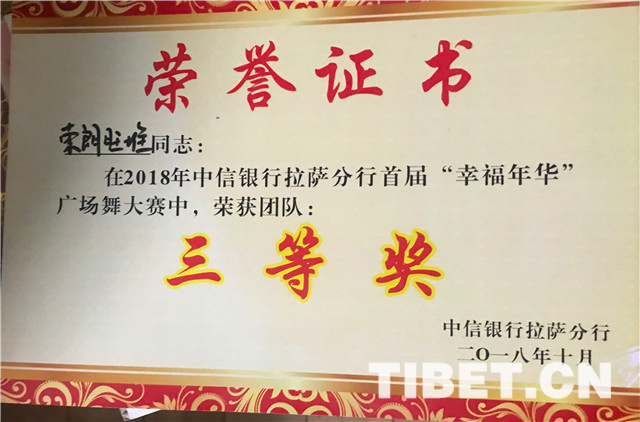 荣誉证书
索朗旺堆同志：
在2018年中信银行拉萨分行首届“幸福年华”
广场舞大赛中，荣获团队：
三等奖
中信银行拉萨分行
二〇一八年十月
TIBET.CN